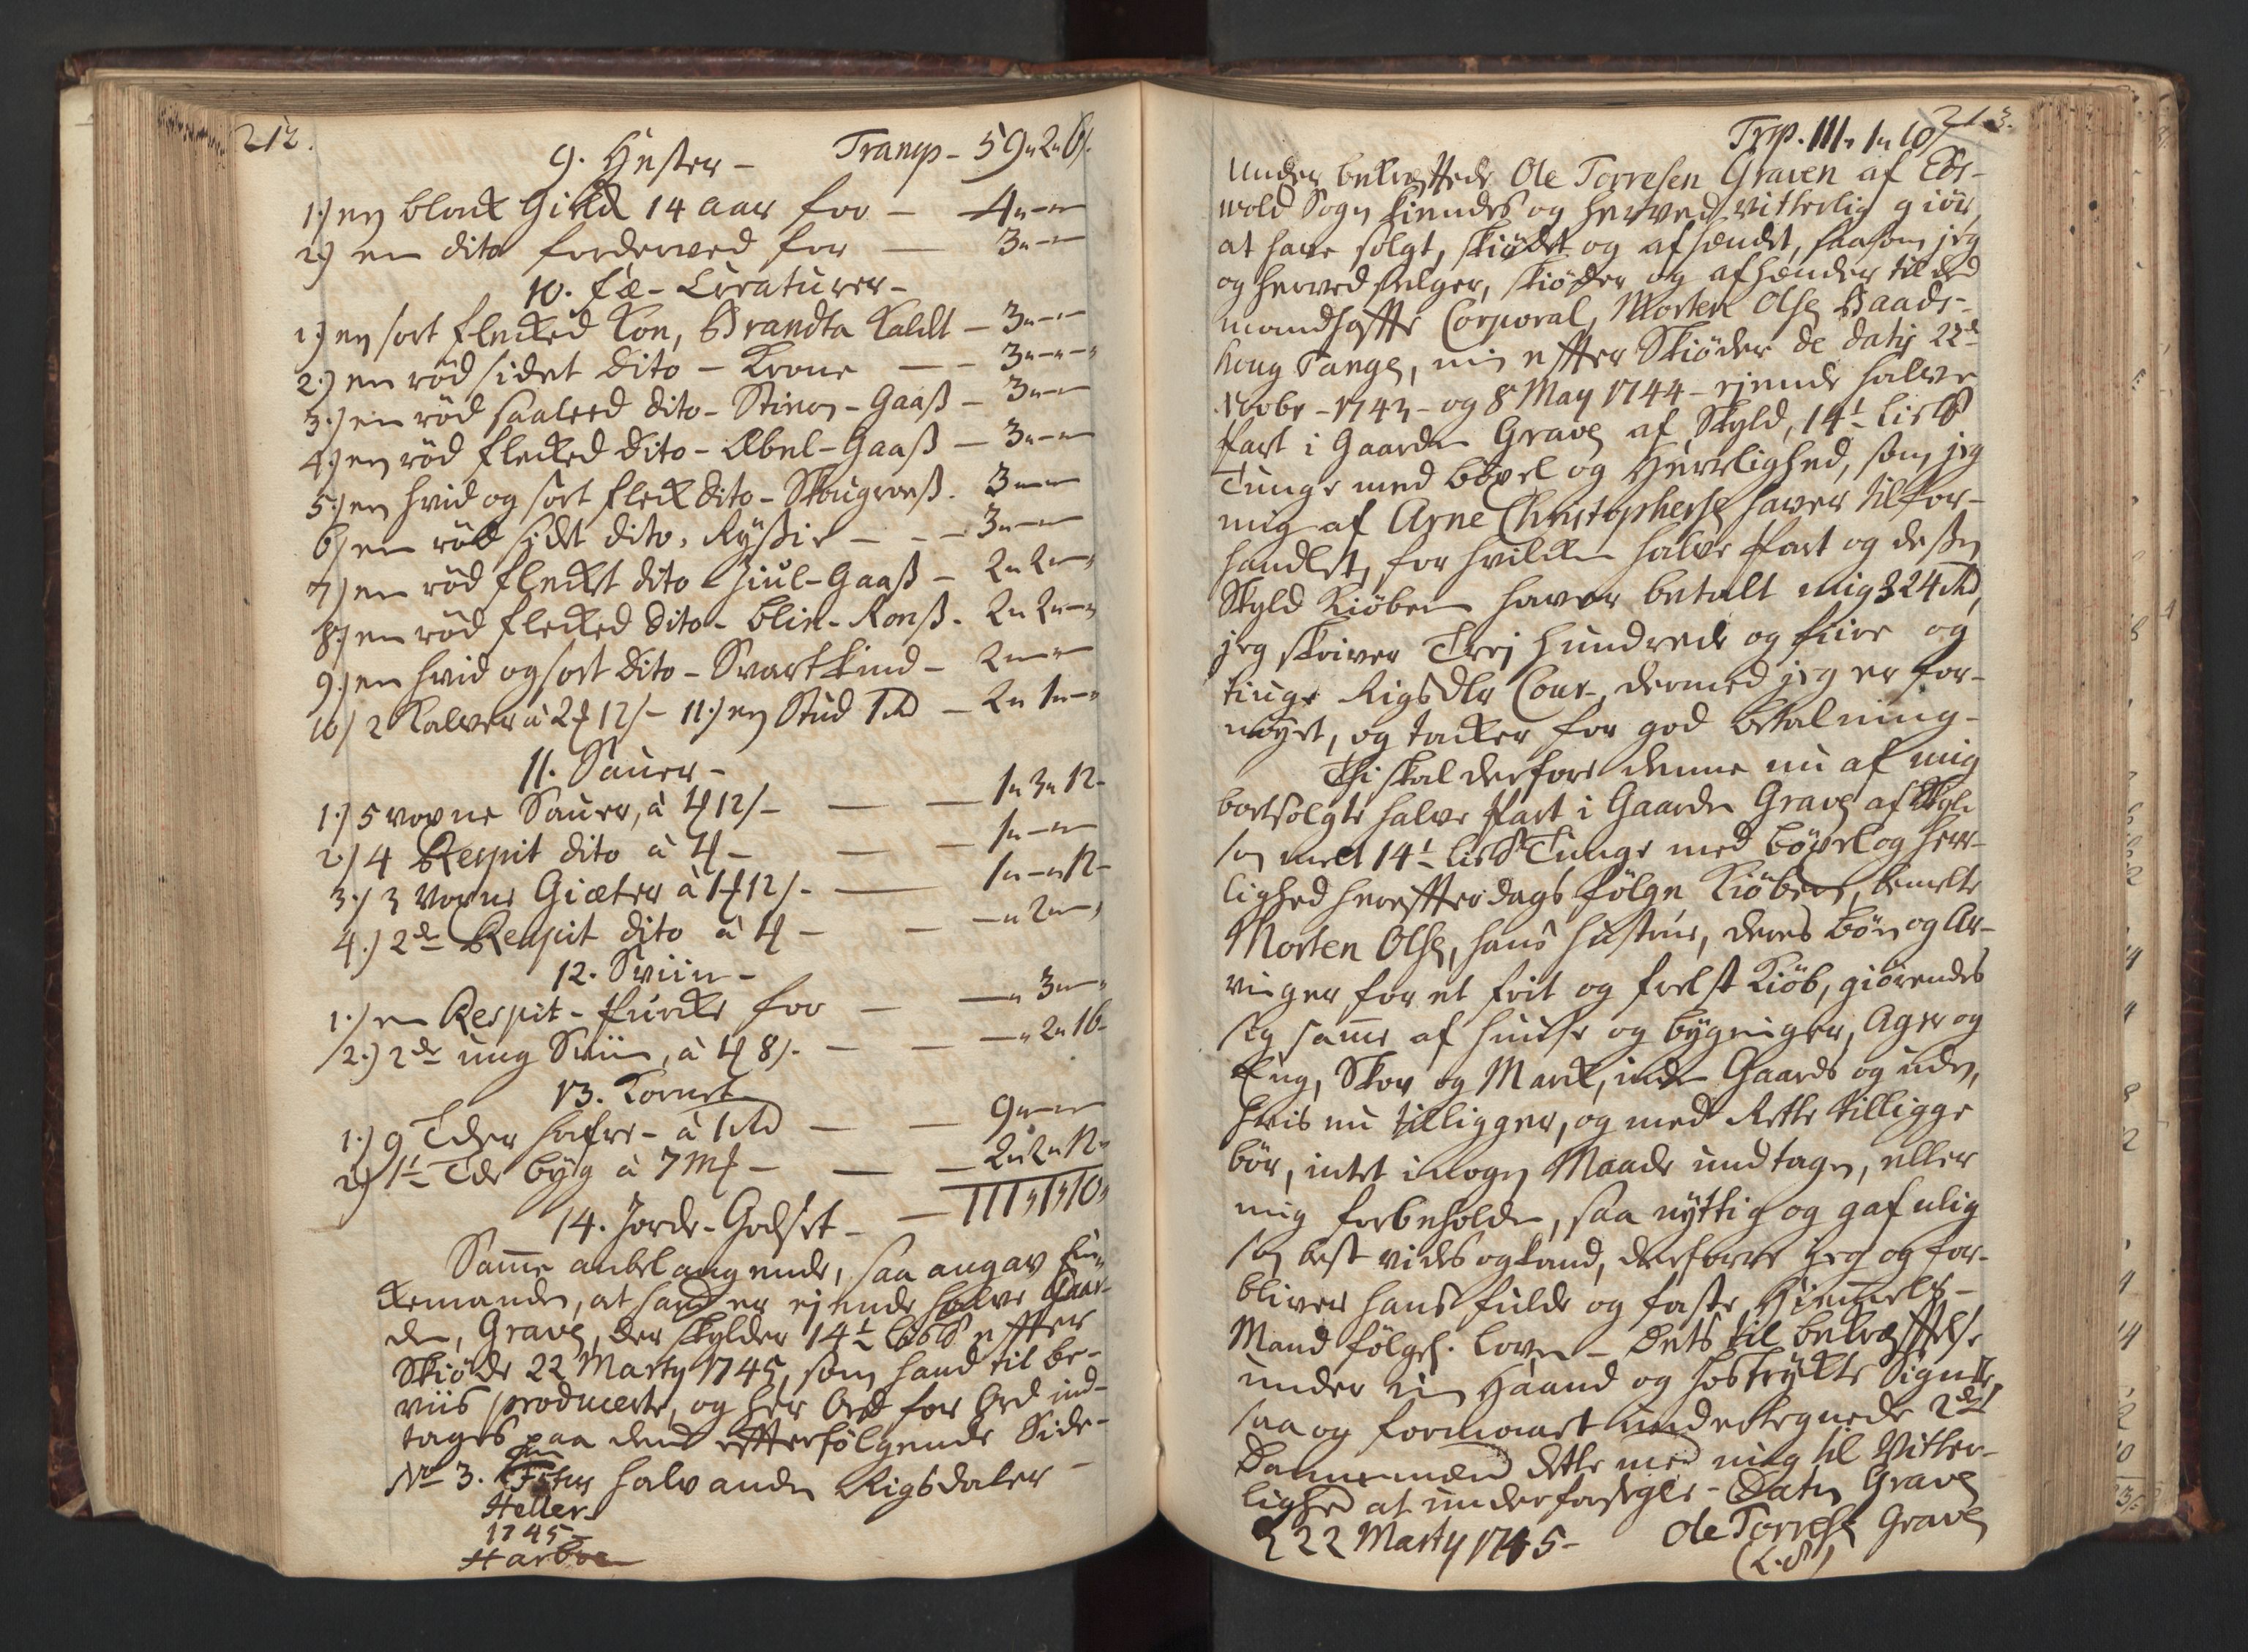 212.
9. Hester – Transp – 59„2„6/.
1.) en blank Gild 14 aar for – 4„–„–
2.) en dito forderved for — 3„–„–
10. Fæ-Creaturer –
1.) en sort flecked Koe, Brandta kaldt – 3„–„–
2.) en rød sidet dito – Krone — – 3„–„–
3.) en rød saaleed dito – Stiern-Gaaß – 3„–„–
4.) en rød flecked dito – Æbel-Gaaß — 3„–„–
5.) en hvid og sort fleck dito – Skougroeß. 3„–„–
6.) en rød sidet dito, – – – 3„–„–
7.) en rød flecket dito Hiul-Gaaß – 2„2„–
8.) en rød flecked dito – Blie-Roß. 2„2„–
9.) en hvid og sort dito – Svartkind – 2„–„–
10.) 2 Kalver à 2 ꝉ 12/ – 11.) en Stud 1 Rd – 2„1„–
11. Sauer –
1.) 5 voxne Sauer, à ꝉ 12/ – — — 1„3„12–
2.) 4 Respit dito à ꝉ – — – 1„–„–
3.) 3 voxne Giæter à 1 ꝉ 12/. — 1„–„12–
4.) 2de Respit dito à ꝉ – – —„2„–
12. Sviin –
1.) en Respit-Purcke for – —„3„–
2.) 2de ung Sviin, à ꝉ 8/. – — —„2„16–
13. Kornet
1.) 9 Tder hafre – à 1 Rd — — 9„–„–
2.) 1½ Tde byg à 7 mk – — — 2„2„12–
14. Jorde-Godset – — 111„1„10„
Samme anbelangende, saa angav Encke-
manden, at hand er ejende halve Gaar-
den, Graven, der skylder 14½ Lisᵈ effter
Skiøde 22 Marty 1745, som hand til be-
viis producerte, og her Ord for Ord ind-
tages paa dend effterfølgende Side –
No 3. halv anden Rigsdaler –
Heller
1745 –
Harboe
213.
Trp. 111„1„10/
Under bekræfftede Ole Torresen Graven af Eds-
wold Sogn kiendes og herved vitterlig giør,
at have solgt, skiødet og afhændet, saasom jeg
og herved selger, skiøder og afhænder til dend
mandhaffte Corporal, Morten Olsen Baads-
houg Tangen, min effter Skiøder de datis 22de
Novbr – 1743 – og 8 May 1744 – ejende halve
Part i Gaarden Graven af Skyld, 14½ Lisᵈ
Tunge med bøxel og Herrlighed, som jeg
mig af Arne Christophersen haver tilfor-
handlet, for hvilken halve Part og deßen
Skyld Kiøberen haver betalt mig 324 Rd,
jeg skriver Trej Hundrede og fiire og
tiuge Rigsdlr Cour., dermed jeg er for-
nøyet, og tacker for god betalning –
Thi skal derfore denne nu af mig
bortsolgte halve Part i Gaarden Graven af Skyld
som melt 14½ Lisᵈ Tunge med bøxel og herr-
lighed hereffter dags følge Kiøberen, bemelte
Morten Olsen, hans Hustrue, deres Børn og Ar-
vinger for et frit og frelst Kiøb, giørendes
sig samme af Huuse og bygninger, Ager og
Eng, Skov og Marck, inden Gaards og uden,
hvis nu tilligger, og med Rette tilligge
bør, intet i nogen Maade undtagen, eller
mig forbeholden, saa nyttig og gafnlig
som best vides og kand, derforre jeg og for-
bliver hans fulde og faste Hiemmels-
Mand følgl. Loven – Dets til bekræfftelse
under min Haand og hostrykte Signete,
saa og formaaet undertegnede 2de
Dannemænd dette med mig til Vitter-
lighed at underforsegle – Datum Graven
d 22 Marty 1745 – Ole Torresen Graven
(L.S)